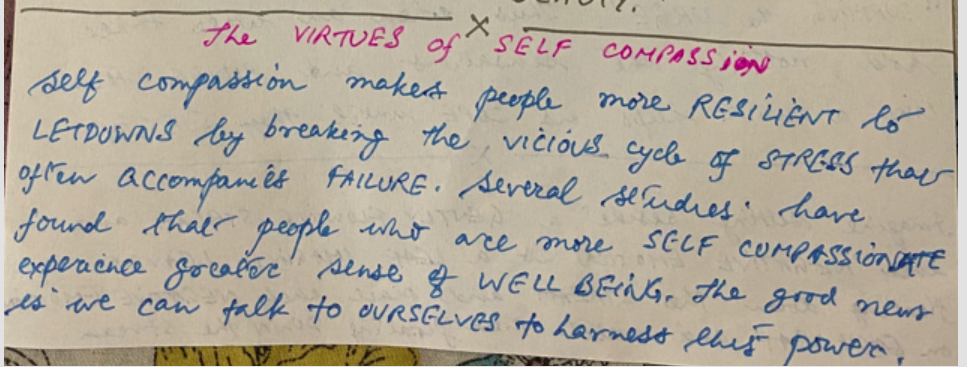 The VIRTUES of SELF COMPASSION
self compassion makes people more RESILIENT to
LETDOWNS by breaking the vicious cycle of STRESS that
often accompanies FAILURE. Several studies have
found that people who are more SELF COMPASSIONATE
experience greater sense of WELL BEING. The good news
is we can talk to OURSELVES to harness this power.